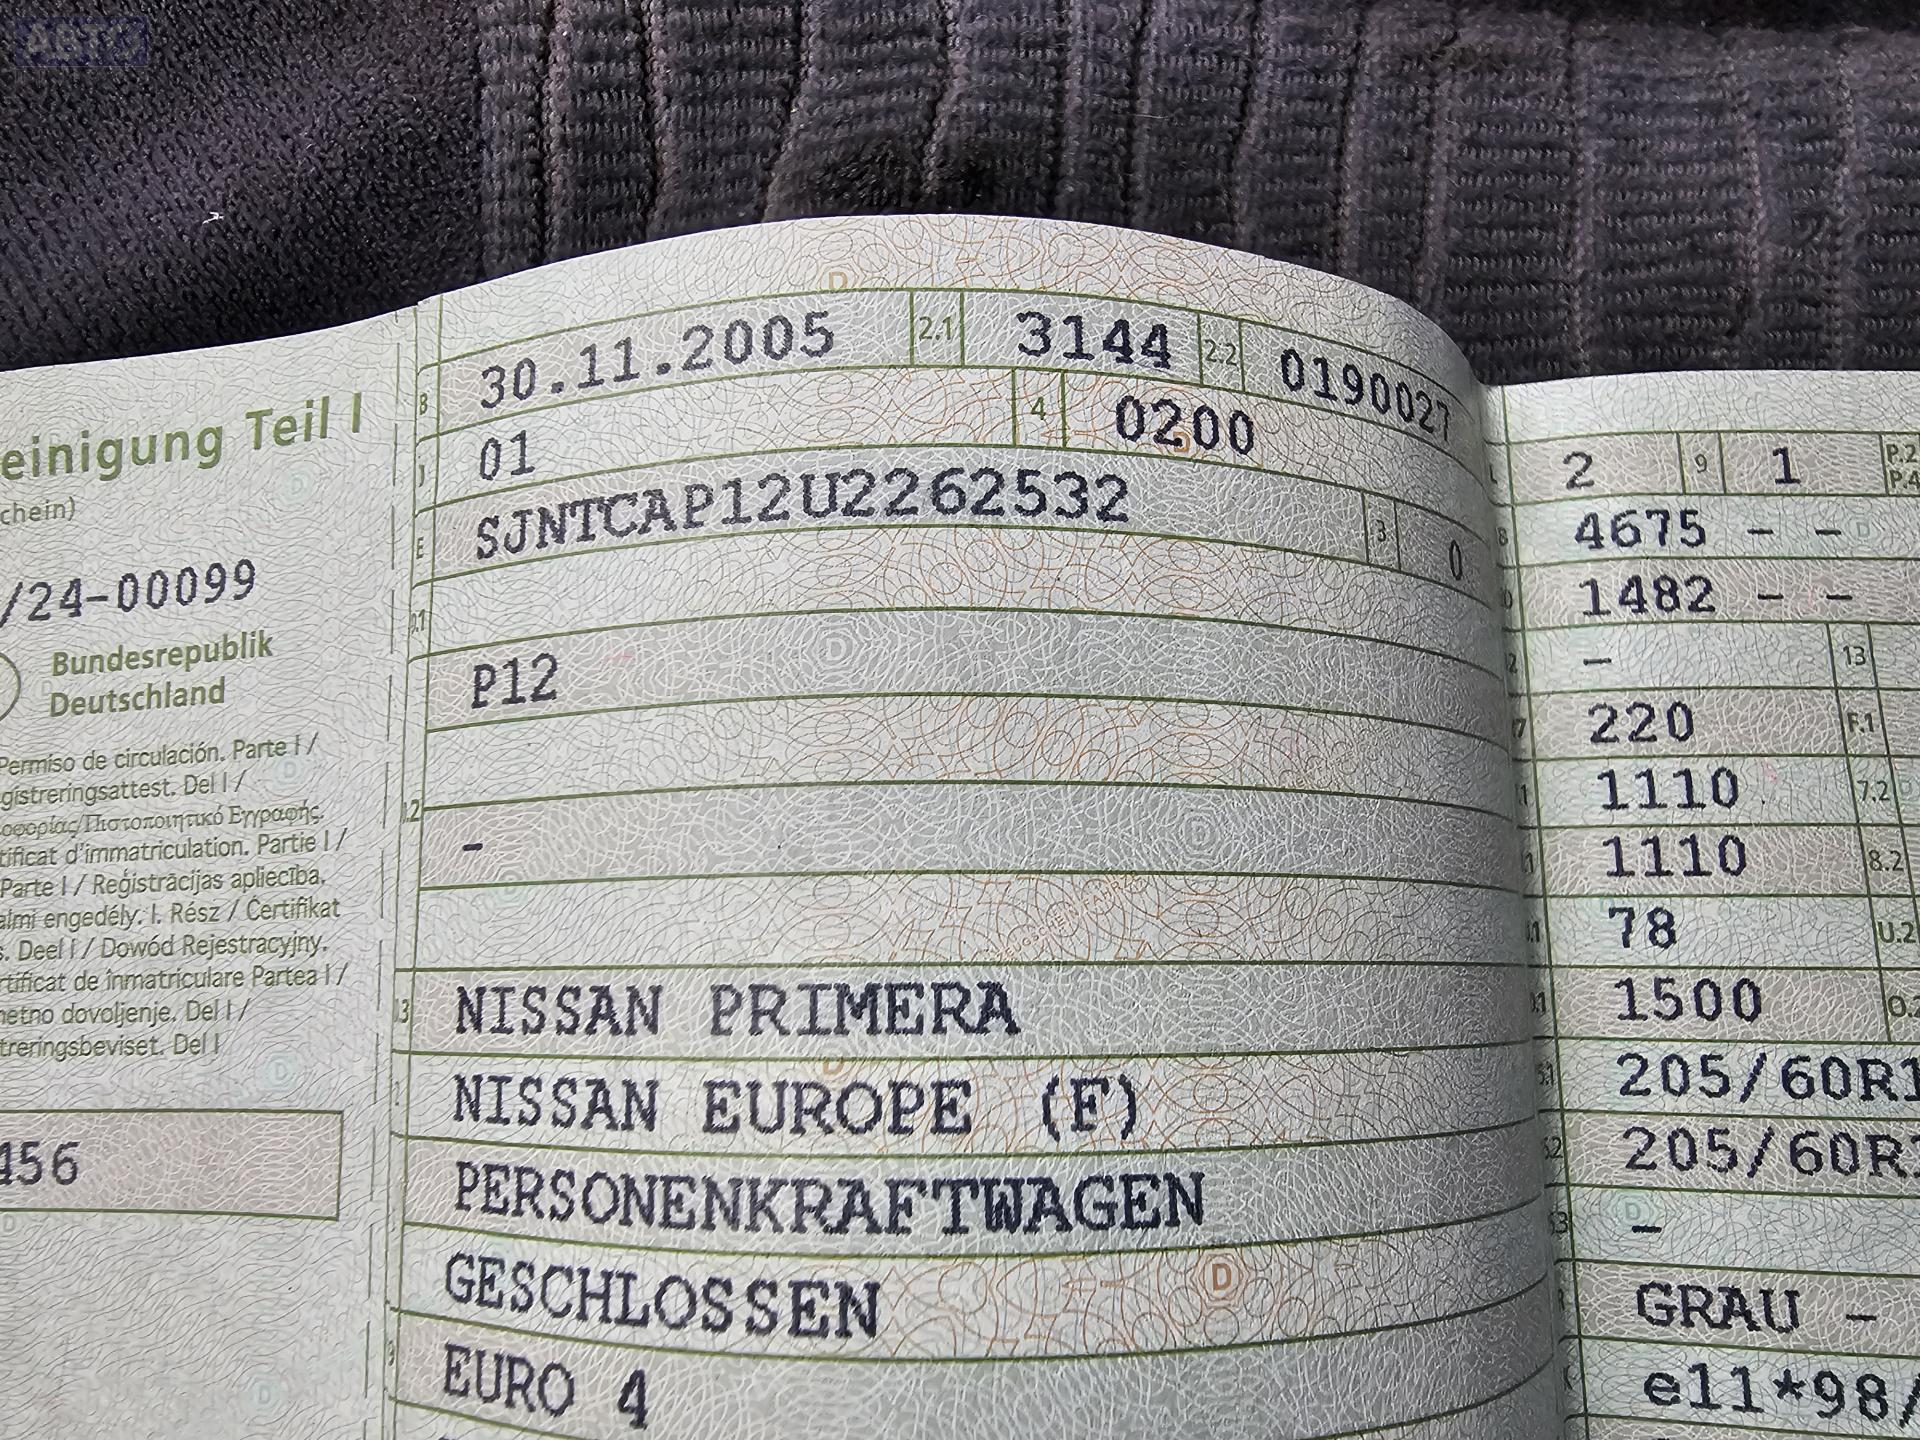 АВТО
einigung Teil I
chein)
/24-00099
Bundesrepublik
Deutschland
Permiso de circulación. Parte I /
gistreringsattest. Del I /
οφορίας/Πιστοποιητικό Εγγραφής.
tificat d'immatriculation. Partie I /
Parte I / Reģistrācijas apliecība.
almi engedély. I. Rész / Ċertifikat
s. Deel I / Dowód Rejestracyjny.
rtificat de înmatriculare Partea I /
metno dovoljenje. Del I /
treringsbeviset. Del I
456
B 30.11.2005 2.1 3144 2.2 0190027
J 01 4 0200
E SJNTCAP12U2262532 3 0
D.1
P12
.2
-
.3 NISSAN PRIMERA
NISSAN EUROPE (F)
PERSONENKRAFTWAGEN
GESCHLOSSEN
EURO 4
L 2 9 1 P.2 P.4
8 4675 - -
1482 - -
2 - 13
7 220 F.1
.1 1110 7.2
.1 1110 8.2
.1 78 U.2
.1 1500 O.2
5.1 205/60R1
.2 205/60R1
.3 -
R GRAU -
K e11*98/